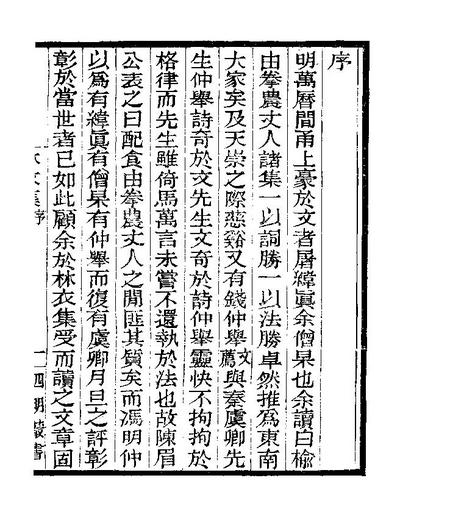 序
明萬曆間甬上豪於文者屠緯眞余僧杲也余讀白榆
由拳農丈人諸集一以詞勝一以法勝卓然推為東南
大家矣及天崇之際慈谿又有錢仲舉文薦與秦虞卿先
生仲舉詩奇於文先生文奇於詩仲舉靈快不拘拘於
格律而先生雖倚馬萬言未嘗不還執於法也故陳眉
公表之曰配食由拳農丈人之間匪其質矣而馮明仲
以為有緯眞有僧杲有仲舉而復有虞卿月旦之評彰
彰於當世者已如此顧余於林衣集受而讀之文章固
衣集序
一
四明叢書